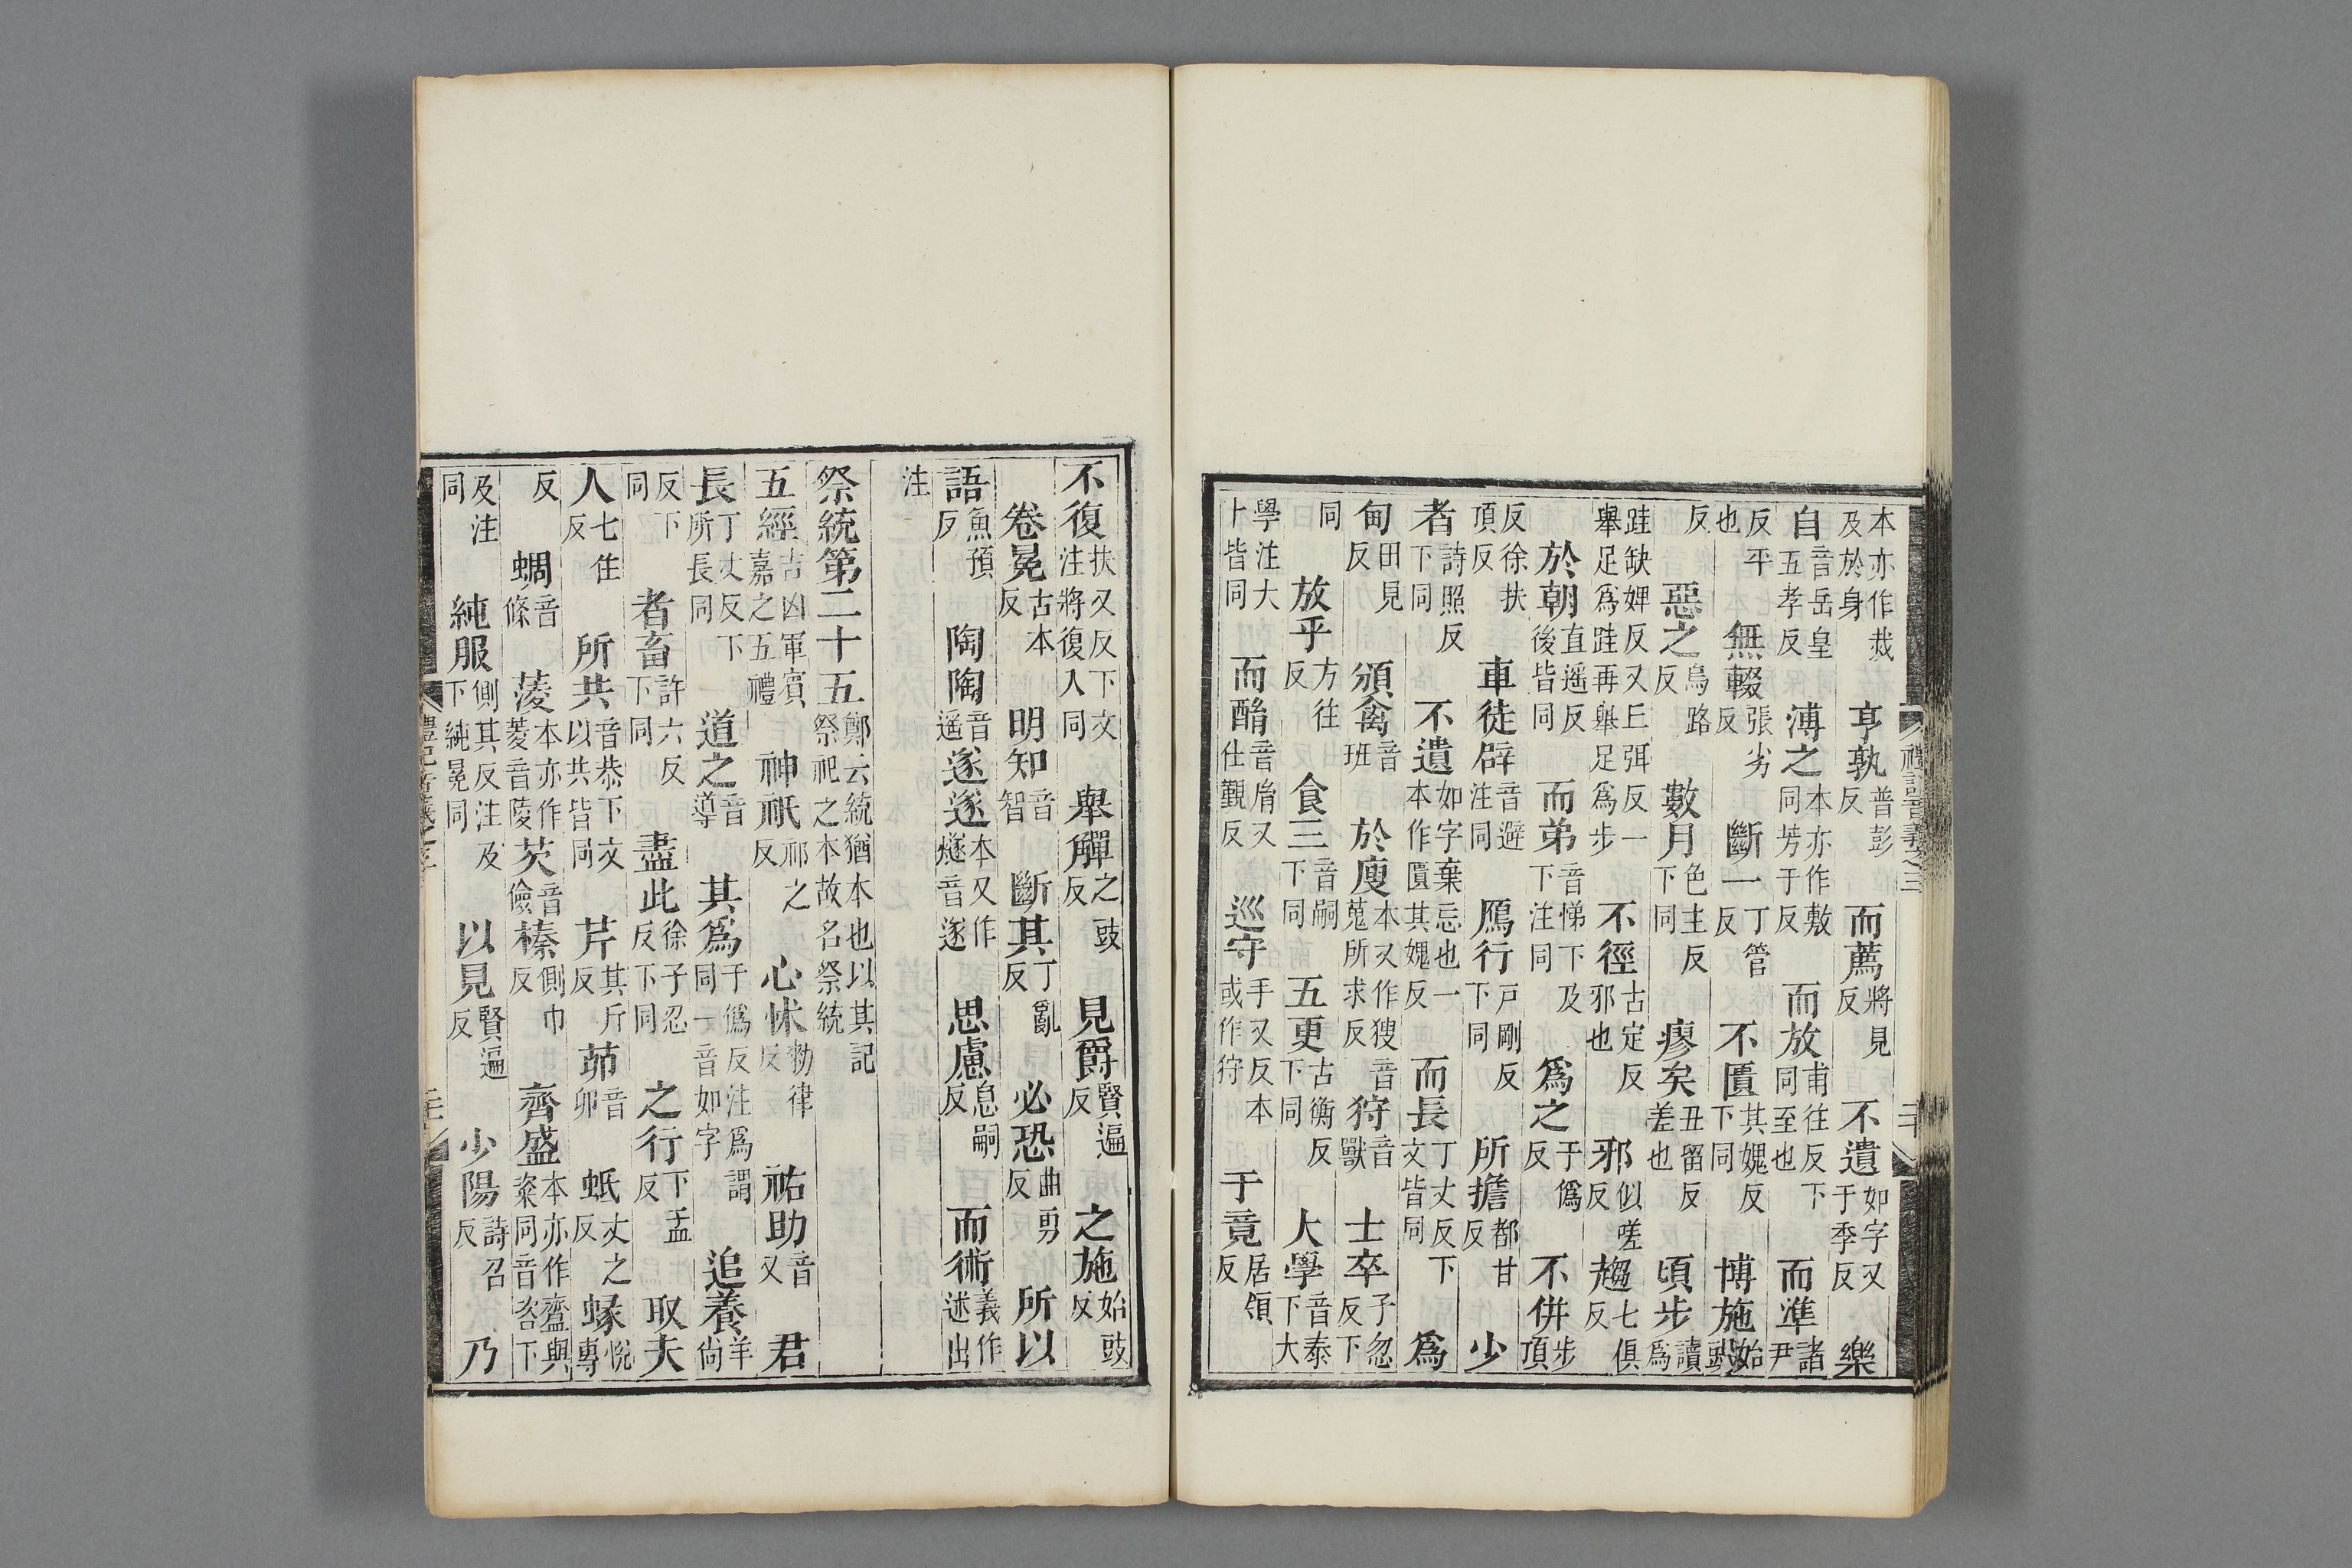 禮記音義之三 二十
本亦作烖及於身 亨孰普彭反 而薦將見反 不遺如字又于季反 樂
自音岳皇五孝反 溥之本亦作敷同芳于反 而放甫往反下同至也 而準諸尹
反平也 無輟張劣反 斷一丁管反 不匱其媿反下同 博施始豉
反 惡之烏路反 數月色主反下同 瘳矣丑留反差也 頃步讀爲
跬缺婢反又丘弭反一舉足爲跬再舉足爲步 不徑古定反邪也 邪似嗟反 趨七俱反
於朝直遥反後皆同 而弟音悌下及下注同 爲之于僞反 不併步頂
反徐扶頂反 車徒辟音避注同 鴈行戶剛反下同 所擔都甘反 少
者詩照反下同 不遺如字棄忘也一本作匱其媿反 而長丁丈反下文皆同 爲
甸田見反 頒禽音班 於廋本又作獀音蒐所求反 狩音獸 士卒子忽反下
同 放乎方往反 食三音嗣下同 五更古衡反下同 大學音泰下大
學注大卜皆同 而酳音胤又仕覲反 巡守手又反本或作狩 于竟居領反
不復扶又反下文注將復入同 舉觶之豉反 見爵賢遍反 之施始豉反
卷冕古本反 明知音智 斷其丁亂反 必恐曲勇反 所以
語魚預反 陶陶音遥 遂遂本又作燧音遂 思慮息嗣反 而術義作述出
注
祭統第二十五鄭云統猶本也以其記祭祀之本故名祭統
五經吉凶軍賓嘉之五禮 神祇祁之反 心怵勑律反 祐助音又 君
長丁丈反下所長同 道之音導 其爲于僞反注爲謂同一音如字 追養羊尚
反下同 者畜許六反下同 盡此徐子忍反下同 之行下孟反 取夫
人七住反 所共音恭下文以共皆同 芹其斤反 茆音卯 蚳丈之反 蝝悅專
反 蜩音條 蔆本亦作菱音陵 芡音儉 榛側巾反 齊盛本亦作齍與粢同音咨下
及注同 純服側其反注及下純冕同 以見賢遍反 少陽詩召反 乃
禮記音義之三